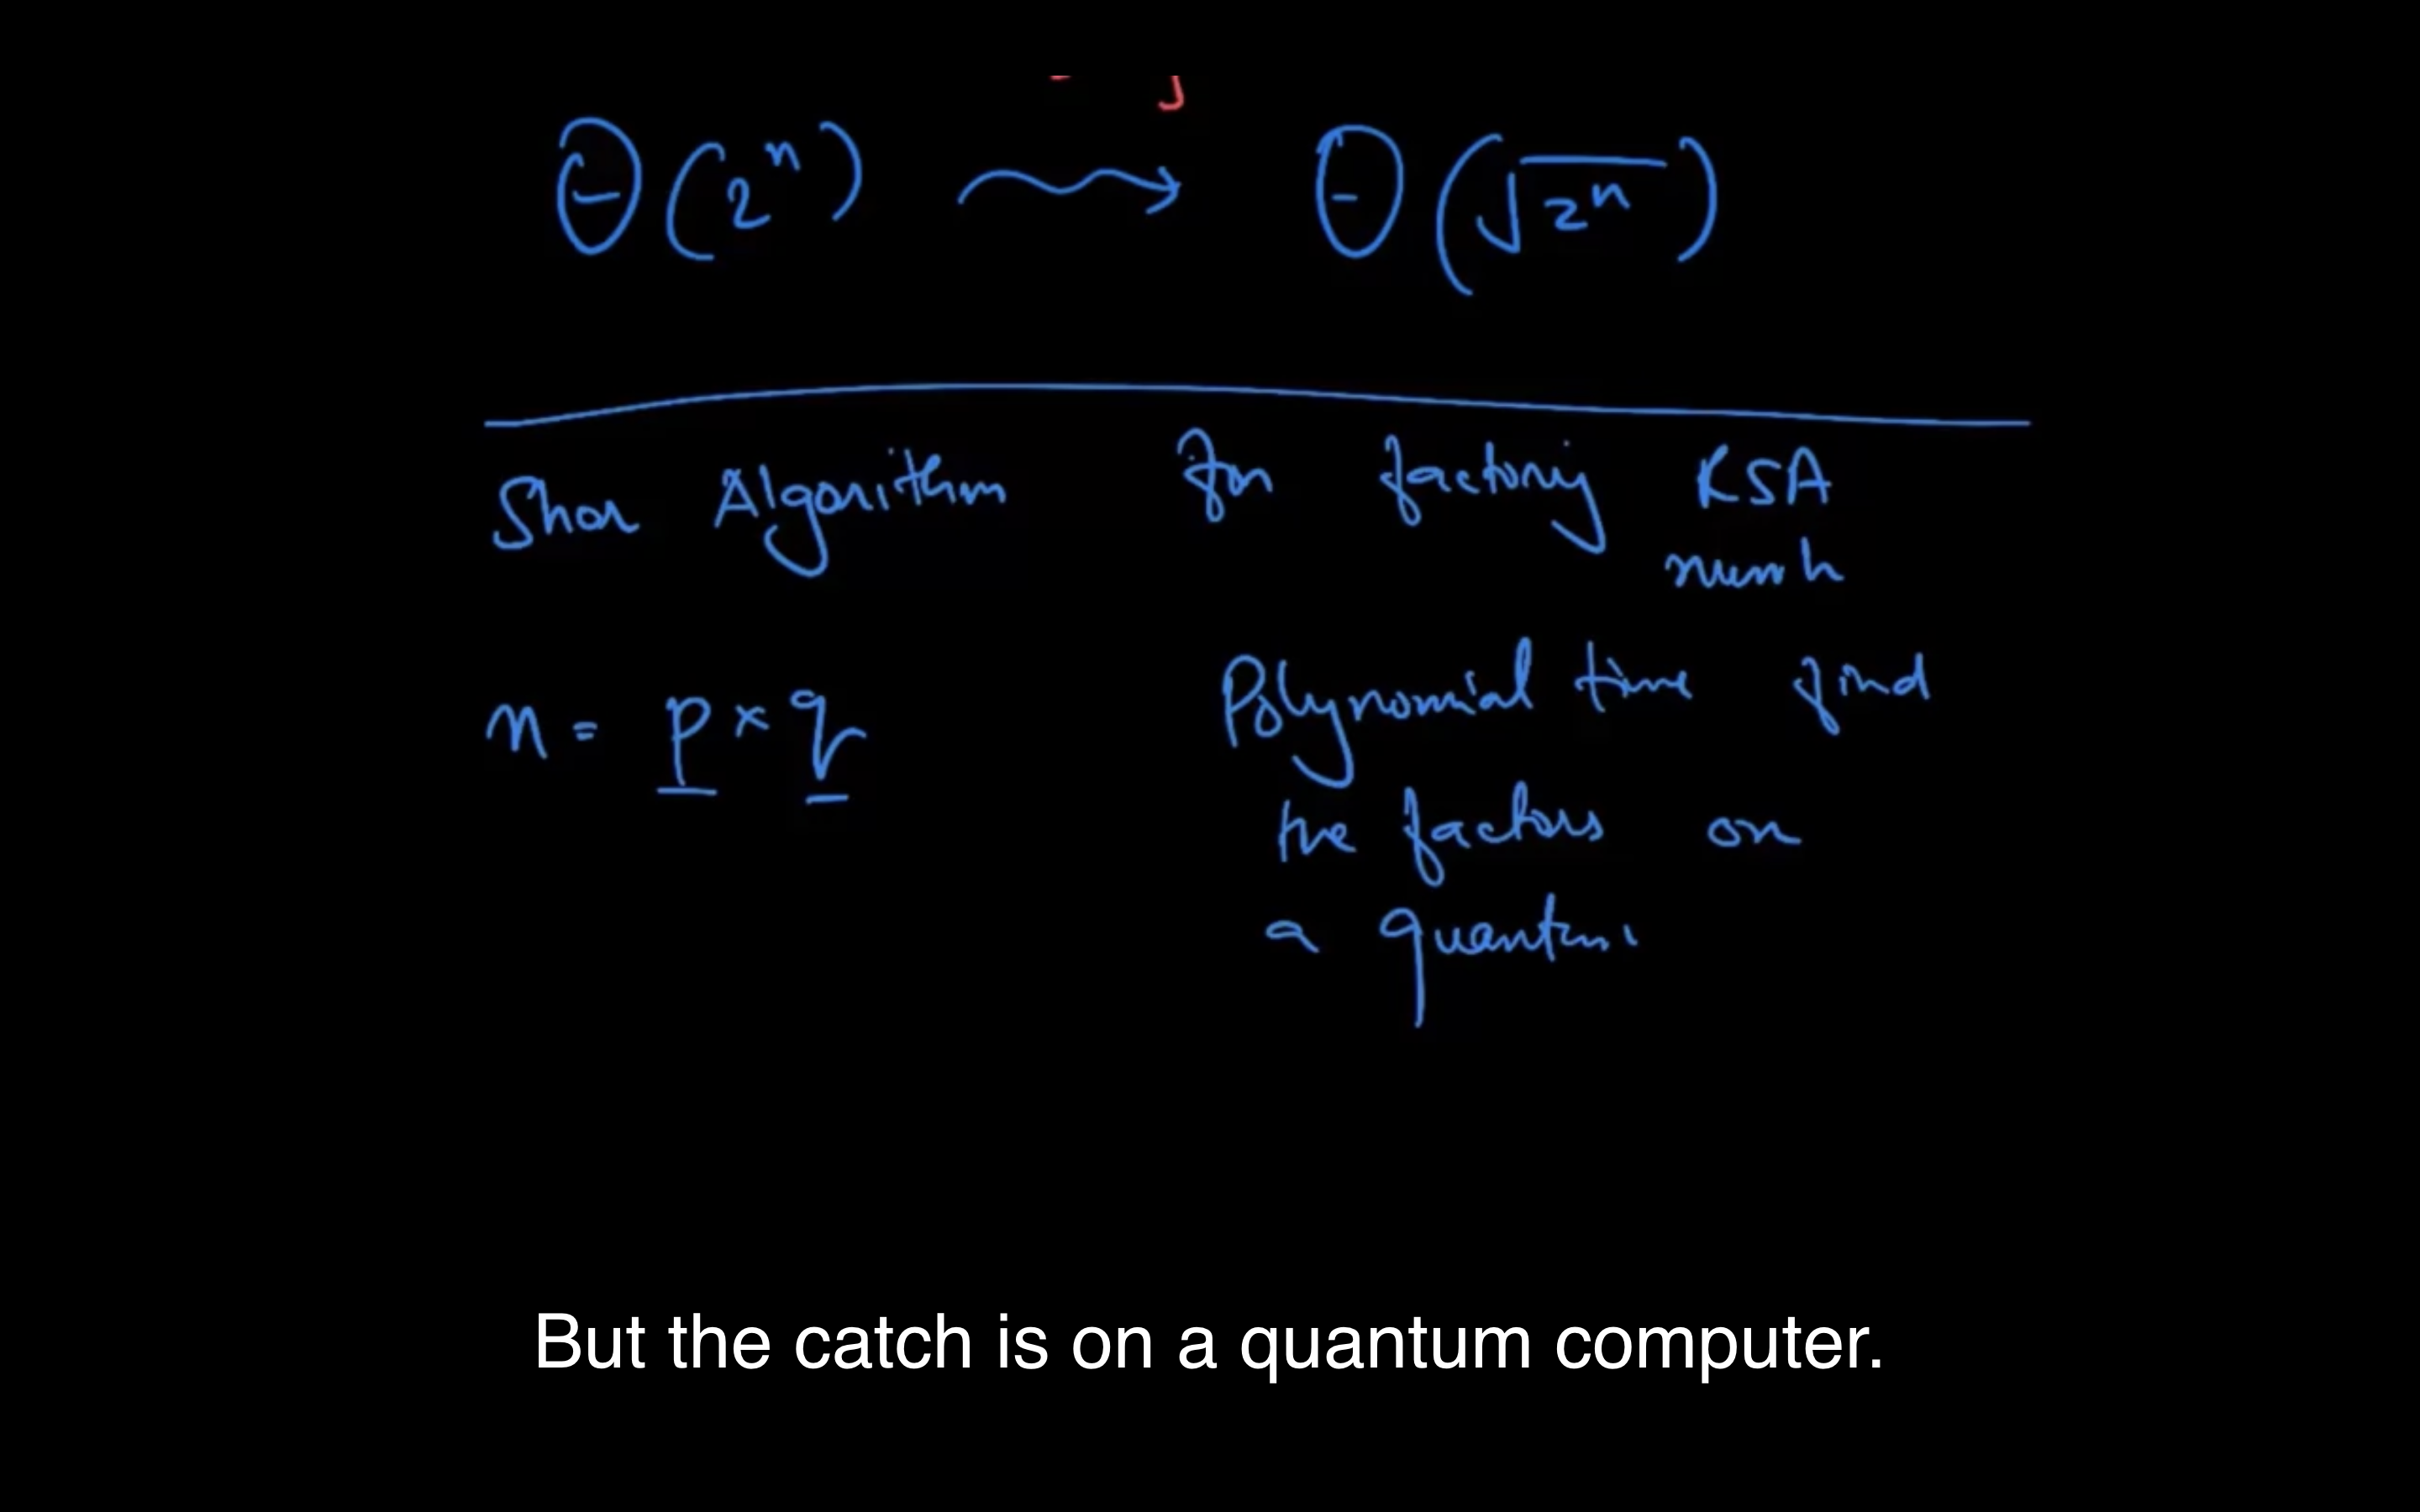 Θ(2ⁿ) ⇝ Θ(√2ⁿ)
Shor Algorithm for factoring RSA
n = p × q
Polynomial time find
the factors on
a quantum
But the catch is on a quantum computer.